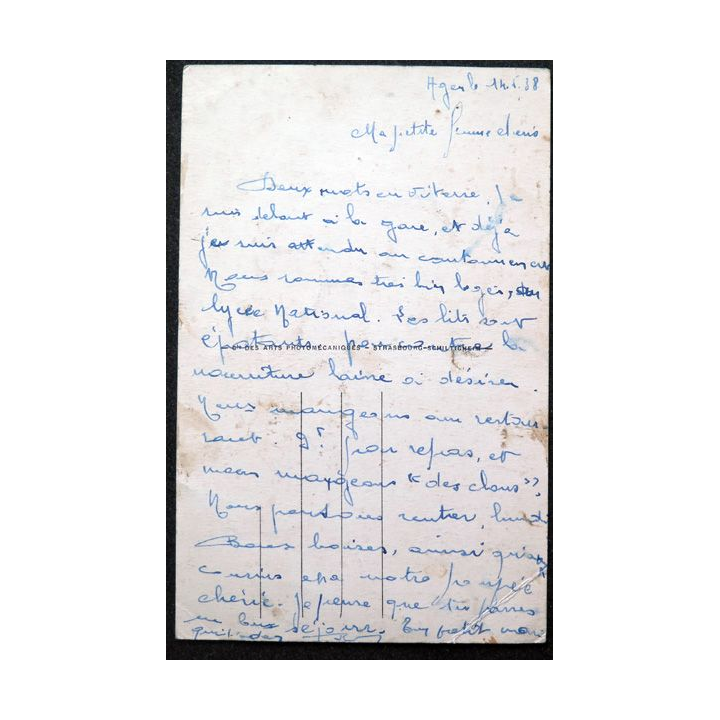 14.5.38
Ma petite femme chérie
Deux mots en vitesse, Je
suis debout à la gare, et déjà
je suis attendu au
Nous sommes très bien logés, au
lycée National. Les lits sont
épatants par contre la
Cie DES ARTS PHOTOMÉCANIQUES - STRASBOURG-SCHILTIGHEIM
nourriture laisse à désirer.
Nous mangeons au restau
rant. par repas, et
nous mangeons "des clous".
Nous pensons rentrer, lundi
Bons baisers, ainsi qu'aux
cousins et à notre poupée
chérie. Je pense que tu passes
un bon séjour. Ton petit mari
qui